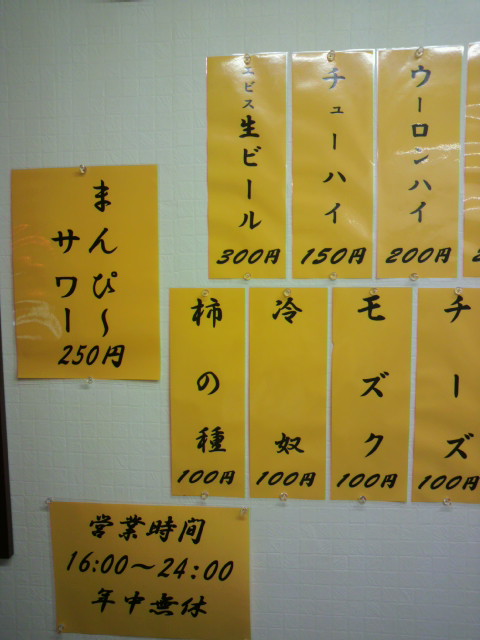 エビス生ビール
300円
チューハイ
150円
ウーロンハイ
200円
まんぴ～
サワー
250円
柿の種
100円
冷奴
100円
モズク
100円
チーズ
100円
営業時間
16:00～24:00
年中無休